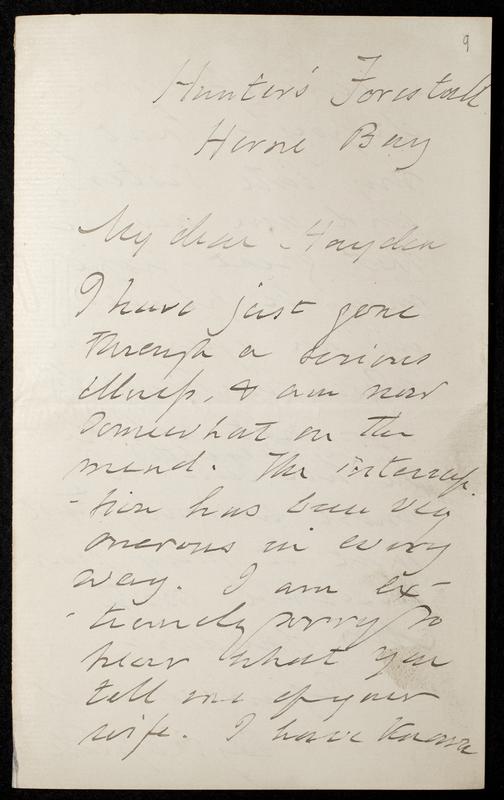 9
Hunter's Forestall
Herne Bay
My dear Hayden
I have just gone
through a serious
illness, & am now
somewhat on the
mend. The interrup-
-tion has been very
onerous in every
way. I am ex-
-tremely sorry to
hear what you
tell me of your
wife. I have known